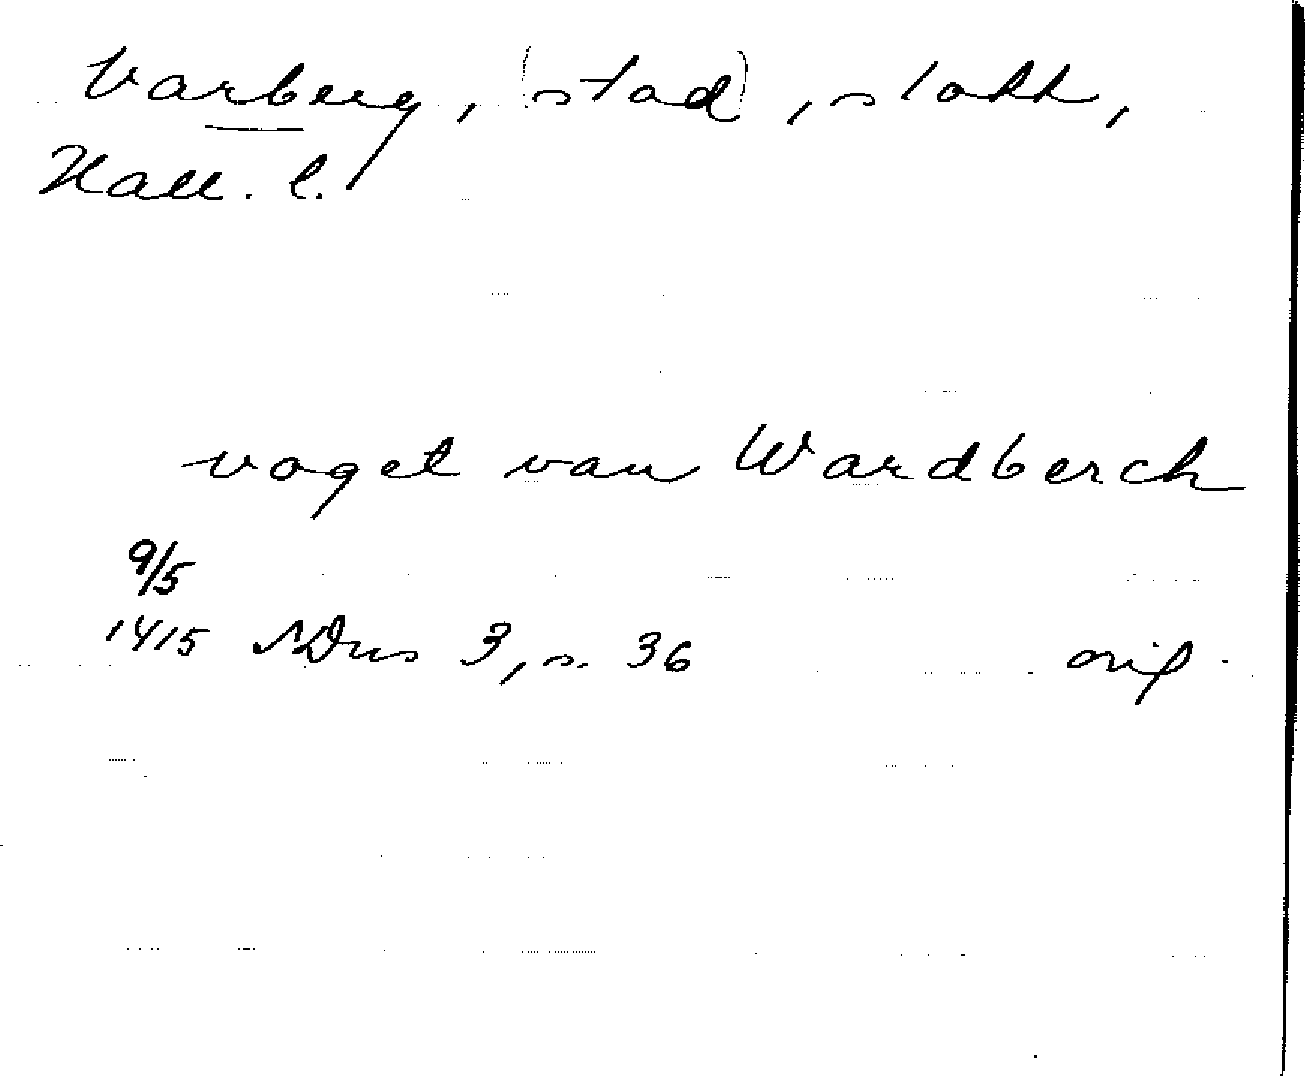 Varberg, (stad), slott,
Hall. l.
voget van Wardberch
9/5
1415 SDns 3, s. 36 orig.